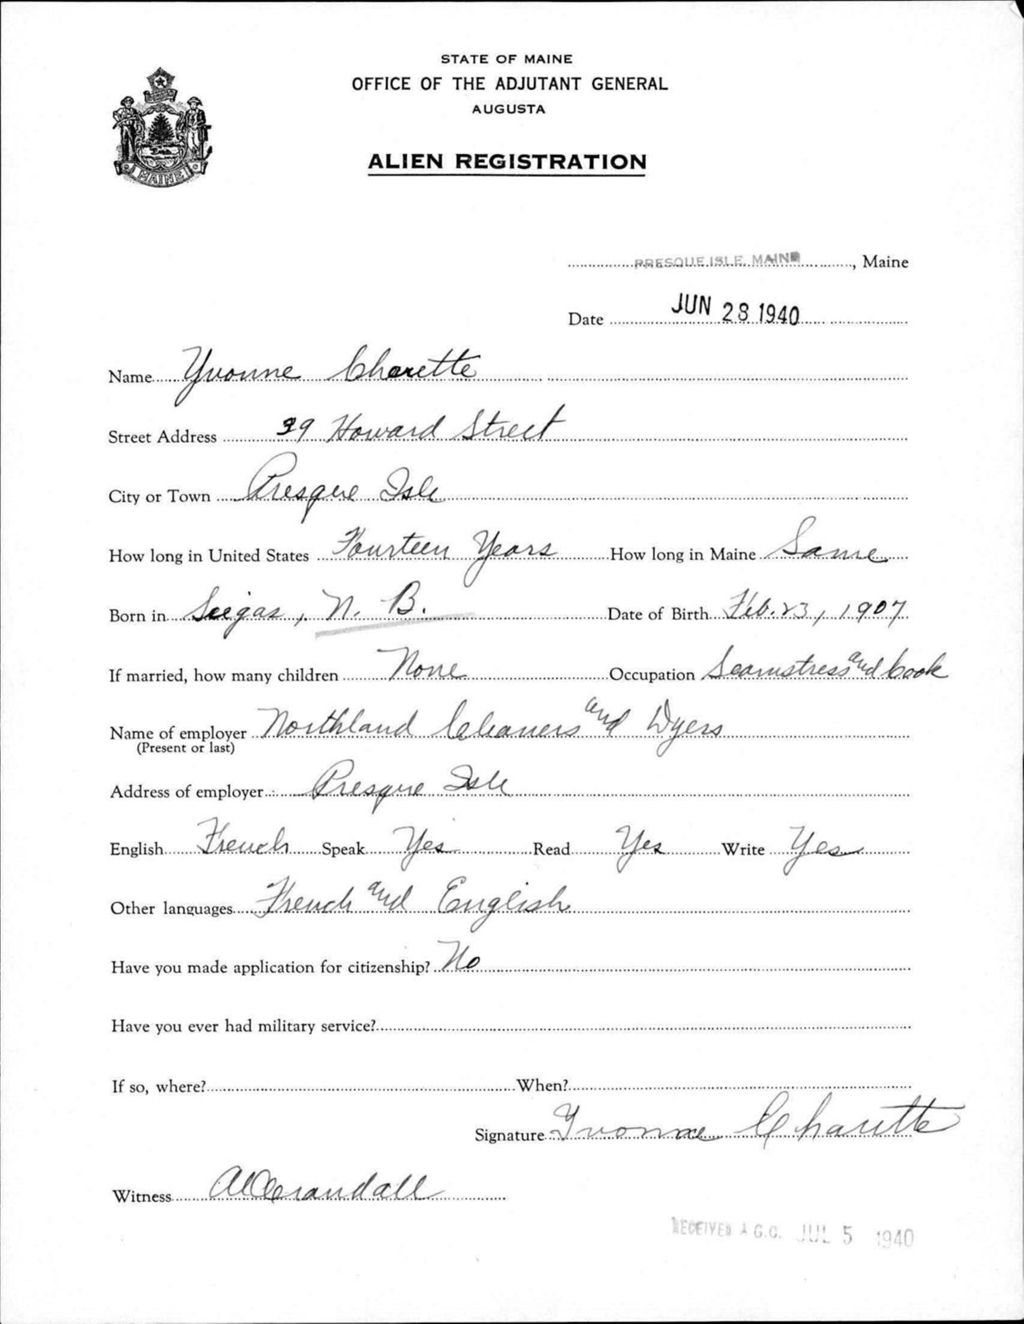 STATE OF MAINE
OFFICE OF THE ADJUTANT GENERAL
AUGUSTA
MAINE
ALIEN REGISTRATION
PRESQUE ISLE, MAINE, Maine
Date JUN 28 1940
Name Yvonne Charette
Street Address 39 Howard Street
City or Town Presque Isle
How long in United States Fourteen Years How long in Maine Same
Born in Siegas, N. B. Date of Birth Feb. 23, 1907
If married, how many children None Occupation Seamstress and Cook
Name of employer Northland Cleaners and Dyers
(Present or last)
Address of employer Presque Isle
English French Speak Yes Read Yes Write Yes
Other languages French and English
Have you made application for citizenship? No
Have you ever had military service?
If so, where? When?
Signature Yvonne Charette
Witness Crandall
RECEIVED A.G.O. JUL 5 1940